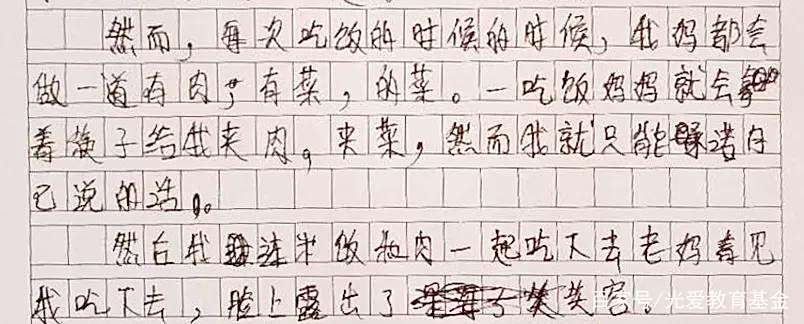 然而，每次吃饭的时候的时候，我妈都会
做一道有肉，有菜，的菜。一吃饭妈妈就会
着筷子给我夹肉。夹菜，然而我就只能 诺自
己说的话。
然后我 连米饭和肉一起吃下去老妈看见
我吃下去，脸上露出了 笑容。
百家号/光爱教育基金